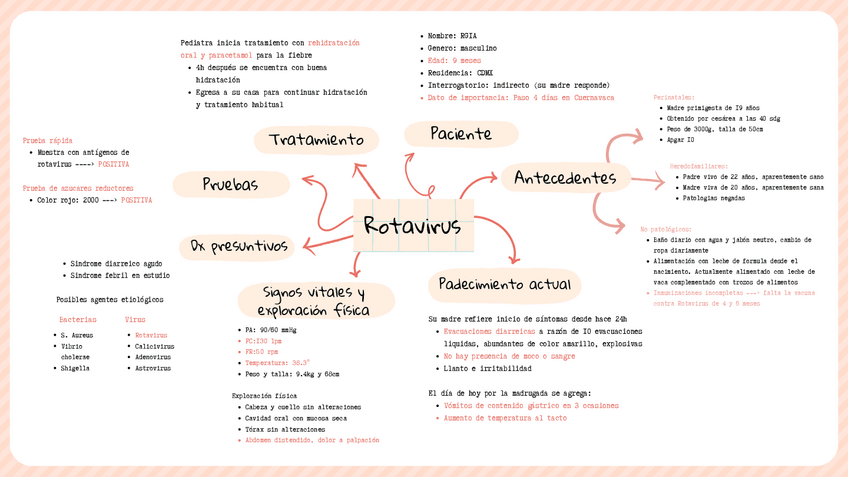 Rotavirus
Paciente
Nombre: RGIA
Genero: masculino
Edad: 9 meses
Residencia: CDMX
Interrogatorio: indirecto (su madre responde)
Dato de importancia: Paso 4 días en Cuernavaca
Antecedentes
Perinatales:
Madre primigesta de 19 años
Obtenido por cesárea a las 40 sdg
Peso de 3000g, talla de 50cm
Apgar 10
Heredofamiliares:
Padre vivo de 22 años, aparentemente sano
Madre viva de 20 años, aparentemente sana
Patologías negadas
No patológicos:
Baño diario con agua y jabón neutro, cambio de
ropa diariamente
Alimentación con leche de formula desde el
nacimiento. Actualmente alimentado con leche de
vaca complementado con trozos de alimentos
Inmunizaciones incompletas ---> falta la vacuna
contra Rotavirus de 4 y 6 meses
Padecimiento actual
Su madre refiere inicio de síntomas desde hace 24h
Evacuaciones diarreicas a razón de 10 evacuaciones
líquidas, abundantes de color amarillo, explosivas
No hay presencia de moco o sangre
Llanto e irritabilidad
El día de hoy por la madrugada se agrega:
Vómitos de contenido gástrico en 3 ocasiones
Aumento de temperatura al tacto
Signos vitales y
exploración física
PA: 90/60 mmHg
FC:130 lpm
FR:50 rpm
Temperatura: 38.3°
Peso y talla: 9.4kg y 68cm
Exploración física
Cabeza y cuello sin alteraciones
Cavidad oral con mucosa seca
Tórax sin alteraciones
Abdomen distendido, dolor a palpación
Dx presuntivos
Síndrome diarreico agudo
Síndrome febril en estudio
Posibles agentes etiológicos
Bacterias
S. Aureus
Vibrio
cholerae
Shigella
Virus
Rotavirus
Calicivirus
Adenovirus
Astrovirus
Pruebas
Prueba rápida
Muestra con antígenos de
rotavirus ----> POSITIVA
Prueba de azucares reductores
Color rojo: 2000 ---> POSITIVA
Tratamiento
Pediatra inicia tratamiento con rehidratación
oral y paracetamol para la fiebre
4h después se encuentra con buena
hidratación
Egresa a su casa para continuar hidratación
y tratamiento habitual